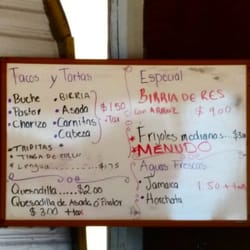 Tacos y Tortas
• Buche
• Pastor
• Chorizo
• BIRRIA
• Asada
• Carnitas
• Cabeza
$1.50
+tax
• TRIPITAS
• TINGA DE POLLO
• Lengua $1.75
Quesadilla ...... $2.00
Quesadilla de Asada ó Pastor
$3.00 +tax
Especial
BIRRIA DE RES
con ARROZ $9.00
• Frijoles medianos
MENUDO
Aguas Frescas
• Jamaica
• Horchata
1.50 + tax